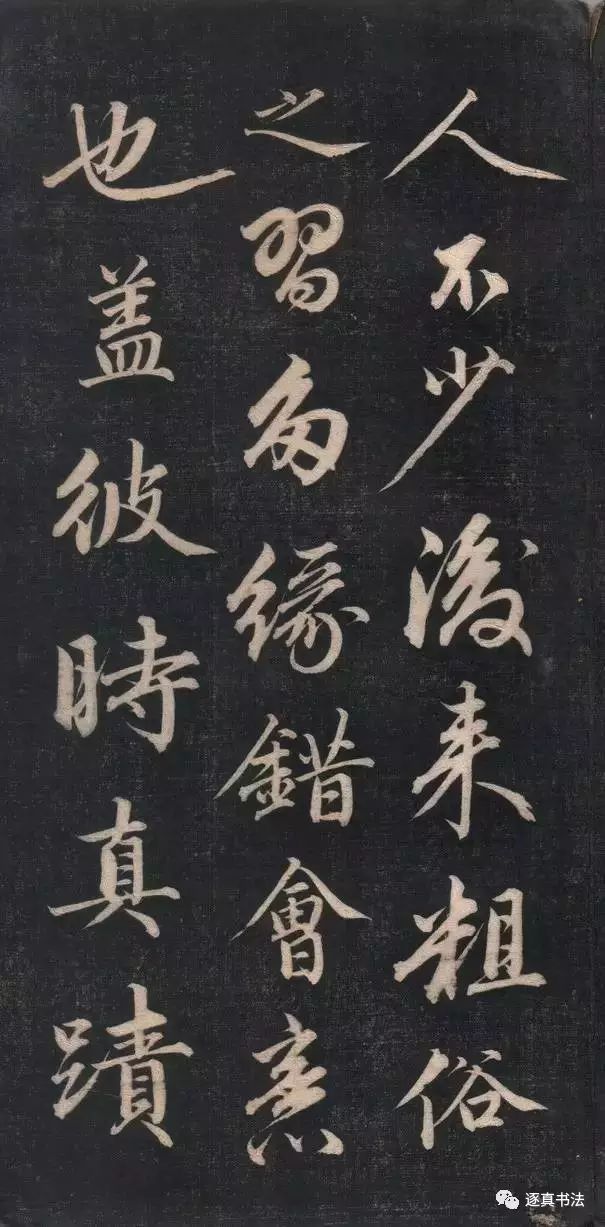 人不少後来粗俗
之習多緣錯會意
也盖彼時真蹟
逐真书法